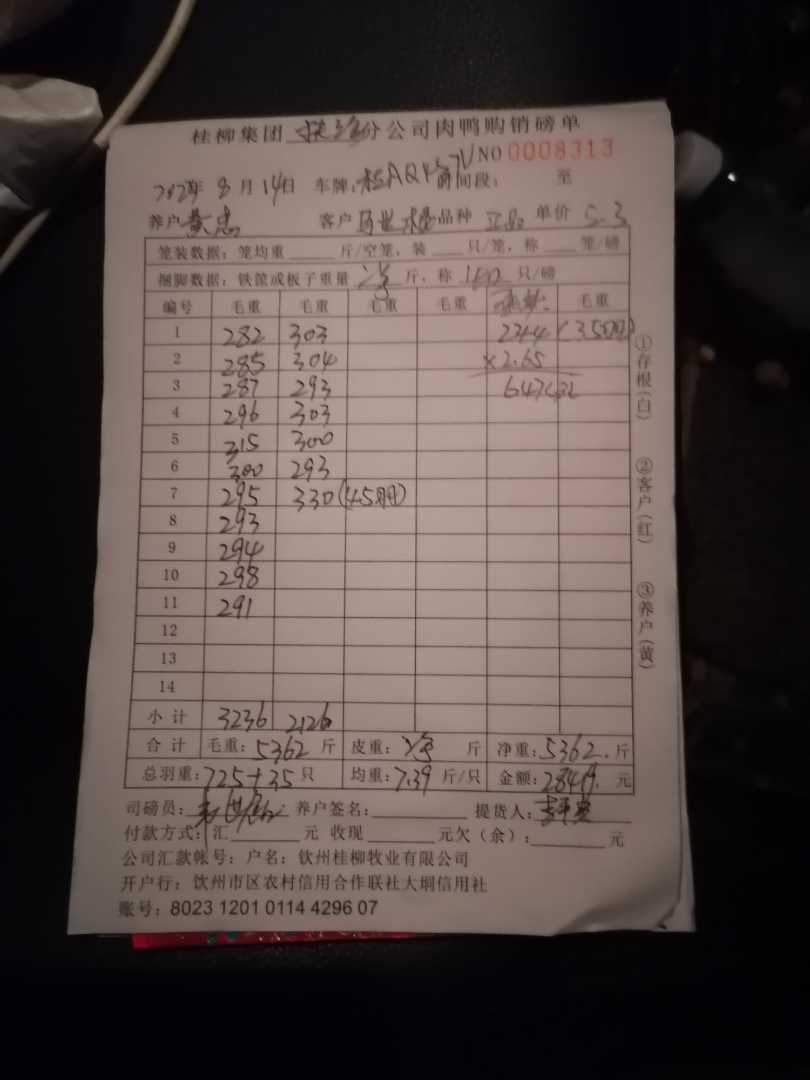 桂柳集团 分公司肉鸭购销磅单
NO 0008313
8月14日 车牌: 时间段: 至
养户 黄忠 客户 品种 正品 单价 5.3
笼装数据: 笼均重 斤/空笼, 装 只/笼, 称 笼/磅
捆脚数据: 铁筐或板子重量 斤, 称 只/磅
编号 毛重 毛重 毛重 毛重 毛重
1 282 303 2244
2 285 304 ×2.65
3 287 293
4 296 303
5 315 300
6 300 293
7 295 330
8 293
9 294
10 298
11 291
12
13
14
小计 3236 2126
合计 毛重: 5362 斤 皮重: 斤 净重: 5362. 斤
总羽重: 725+35 只 均重: 7.39 斤/只 金额: 28419. 元
司磅员: 养户签名: 提货人:
付款方式: 汇 元 收现 元欠(余): 元
公司汇款帐号: 户名: 钦州桂柳牧业有限公司
开户行: 钦州市区农村信用合作联社大垌信用社
账号: 8023 1201 0114 4296 07
①存根(白)
②客户(红)
③养户(黄)